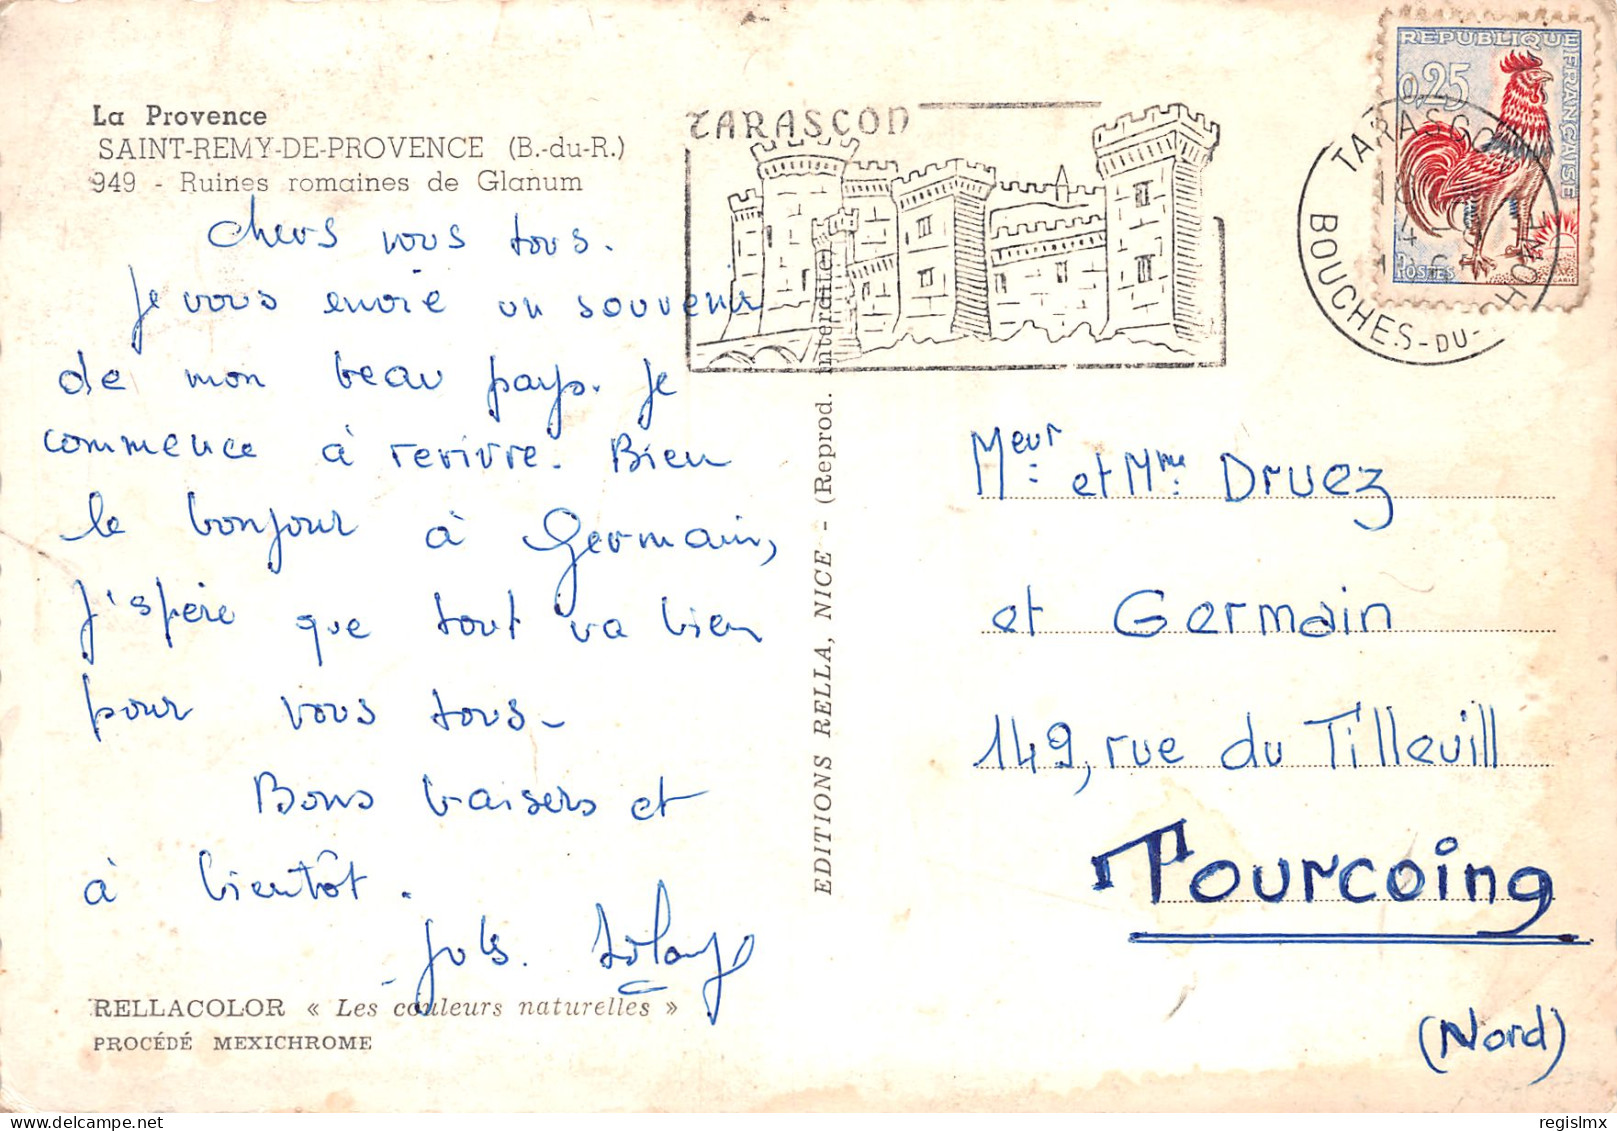 La Provence
SAINT-REMY-DE-PROVENCE (B.-du-R.)
949 - Ruines romaines de Glanum
chers vous tous.
Je vous envoie un souvenir
de mon beau pays. Je
commence à revivre. Bien
le bonjour à Germain,
J'espère que tout va bien
pour vous tous-
Bons baisers et
à bientôt.
RELLACOLOR « Les couleurs naturelles »
PROCÉDÉ MEXICHROME
EDITIONS RELLA, NICE - (Reprod. interdite)
TARASCON
REPUBLIQUE FRANÇAISE
0,25
POSTES
TARASCON
BOUCHES-DU-RHONE
Meur et Mme Druez
et Germain
149, rue du Tilleuill
Tourcoing
(Nord)
regislmx